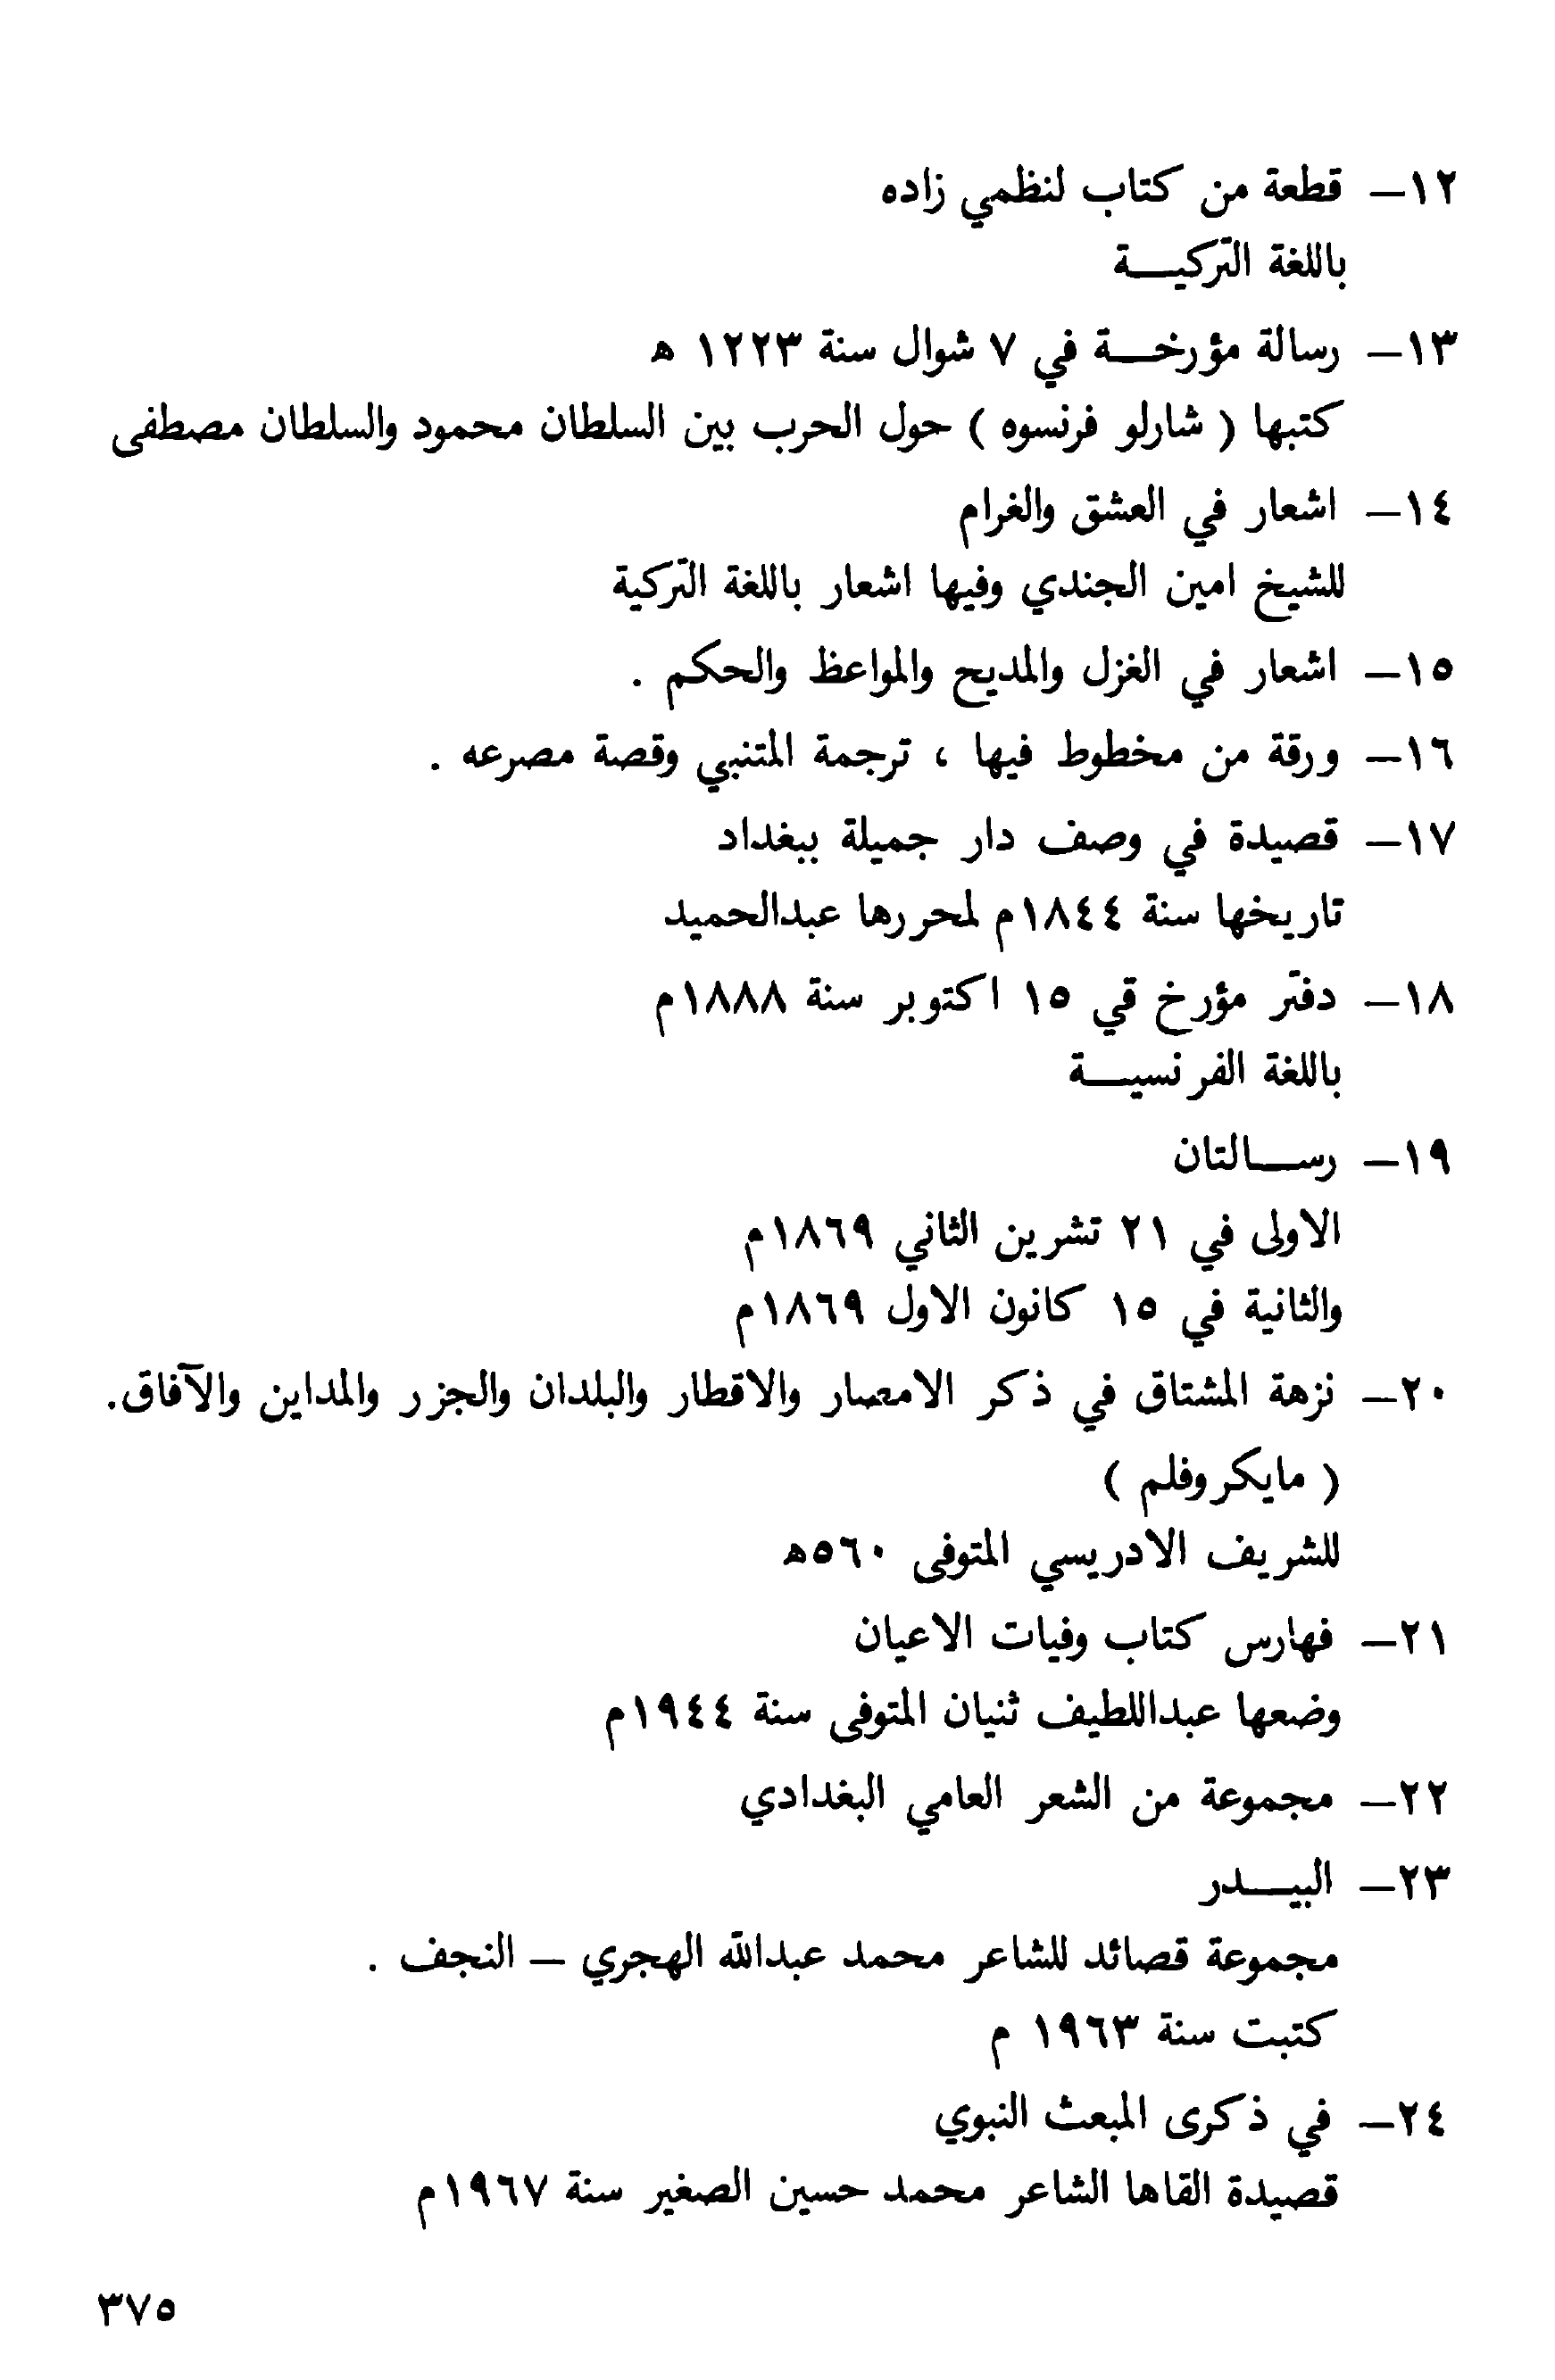 ١٢– قطعة من كتاب لنظمي زاده
باللغة التركيــة
١٣– رسالة مؤرخــة في ٧ شوال سنة ١٢٢٣ ه
كتبها ( شارلو فرنسوه ) حول الحرب بين السلطان محمود والسلطان مصطفى
١٤– اشعار في العشق والغرام
للشيخ امين الجندي وفيها اشعار باللغة التركية
١٥– اشعار في الغزل والمديح والمواعظ والحكم .
١٦– ورقة من مخطوط فيها ، ترجمة المتنبي وقصة مصرعه .
١٧– قصيدة في وصف دار جميلة ببغداد
تاريخها سنة ١٨٤٤م لمحررها عبدالحميد
١٨– دفتر مؤرخ قي ١٥ اكتوبر سنة ١٨٨٨م
باللغة الفرنسيــة
١٩– رســالتان
الاولى في ٢١ تشرين الثاني ١٨٦٩م
والثانية في ١٥ كانون الاول ١٨٦٩م
٢٠– نزهة المشتاق في ذكر الامصار والاقطار والبلدان والجزر والمداين والآفاق.
( مايكروفلم )
للشريف الادريسي المتوفى ٥٦٠ه
٢١– فهارس كتاب وفيات الاعيان
وضعها عبداللطيف ثنيان المتوفى سنة ١٩٤٤م
٢٢– مجموعة من الشعر العامي البغدادي
٢٣– البيــدر
مجموعة قصائد للشاعر محمد عبدالله الهجري – النجف .
كتبت سنة ١٩٦٣ م
٢٤– في ذكرى المبعث النبوي
قصيدة القاها الشاعر محمد حسين الصغير سنة ١٩٦٧م
٣٧٥